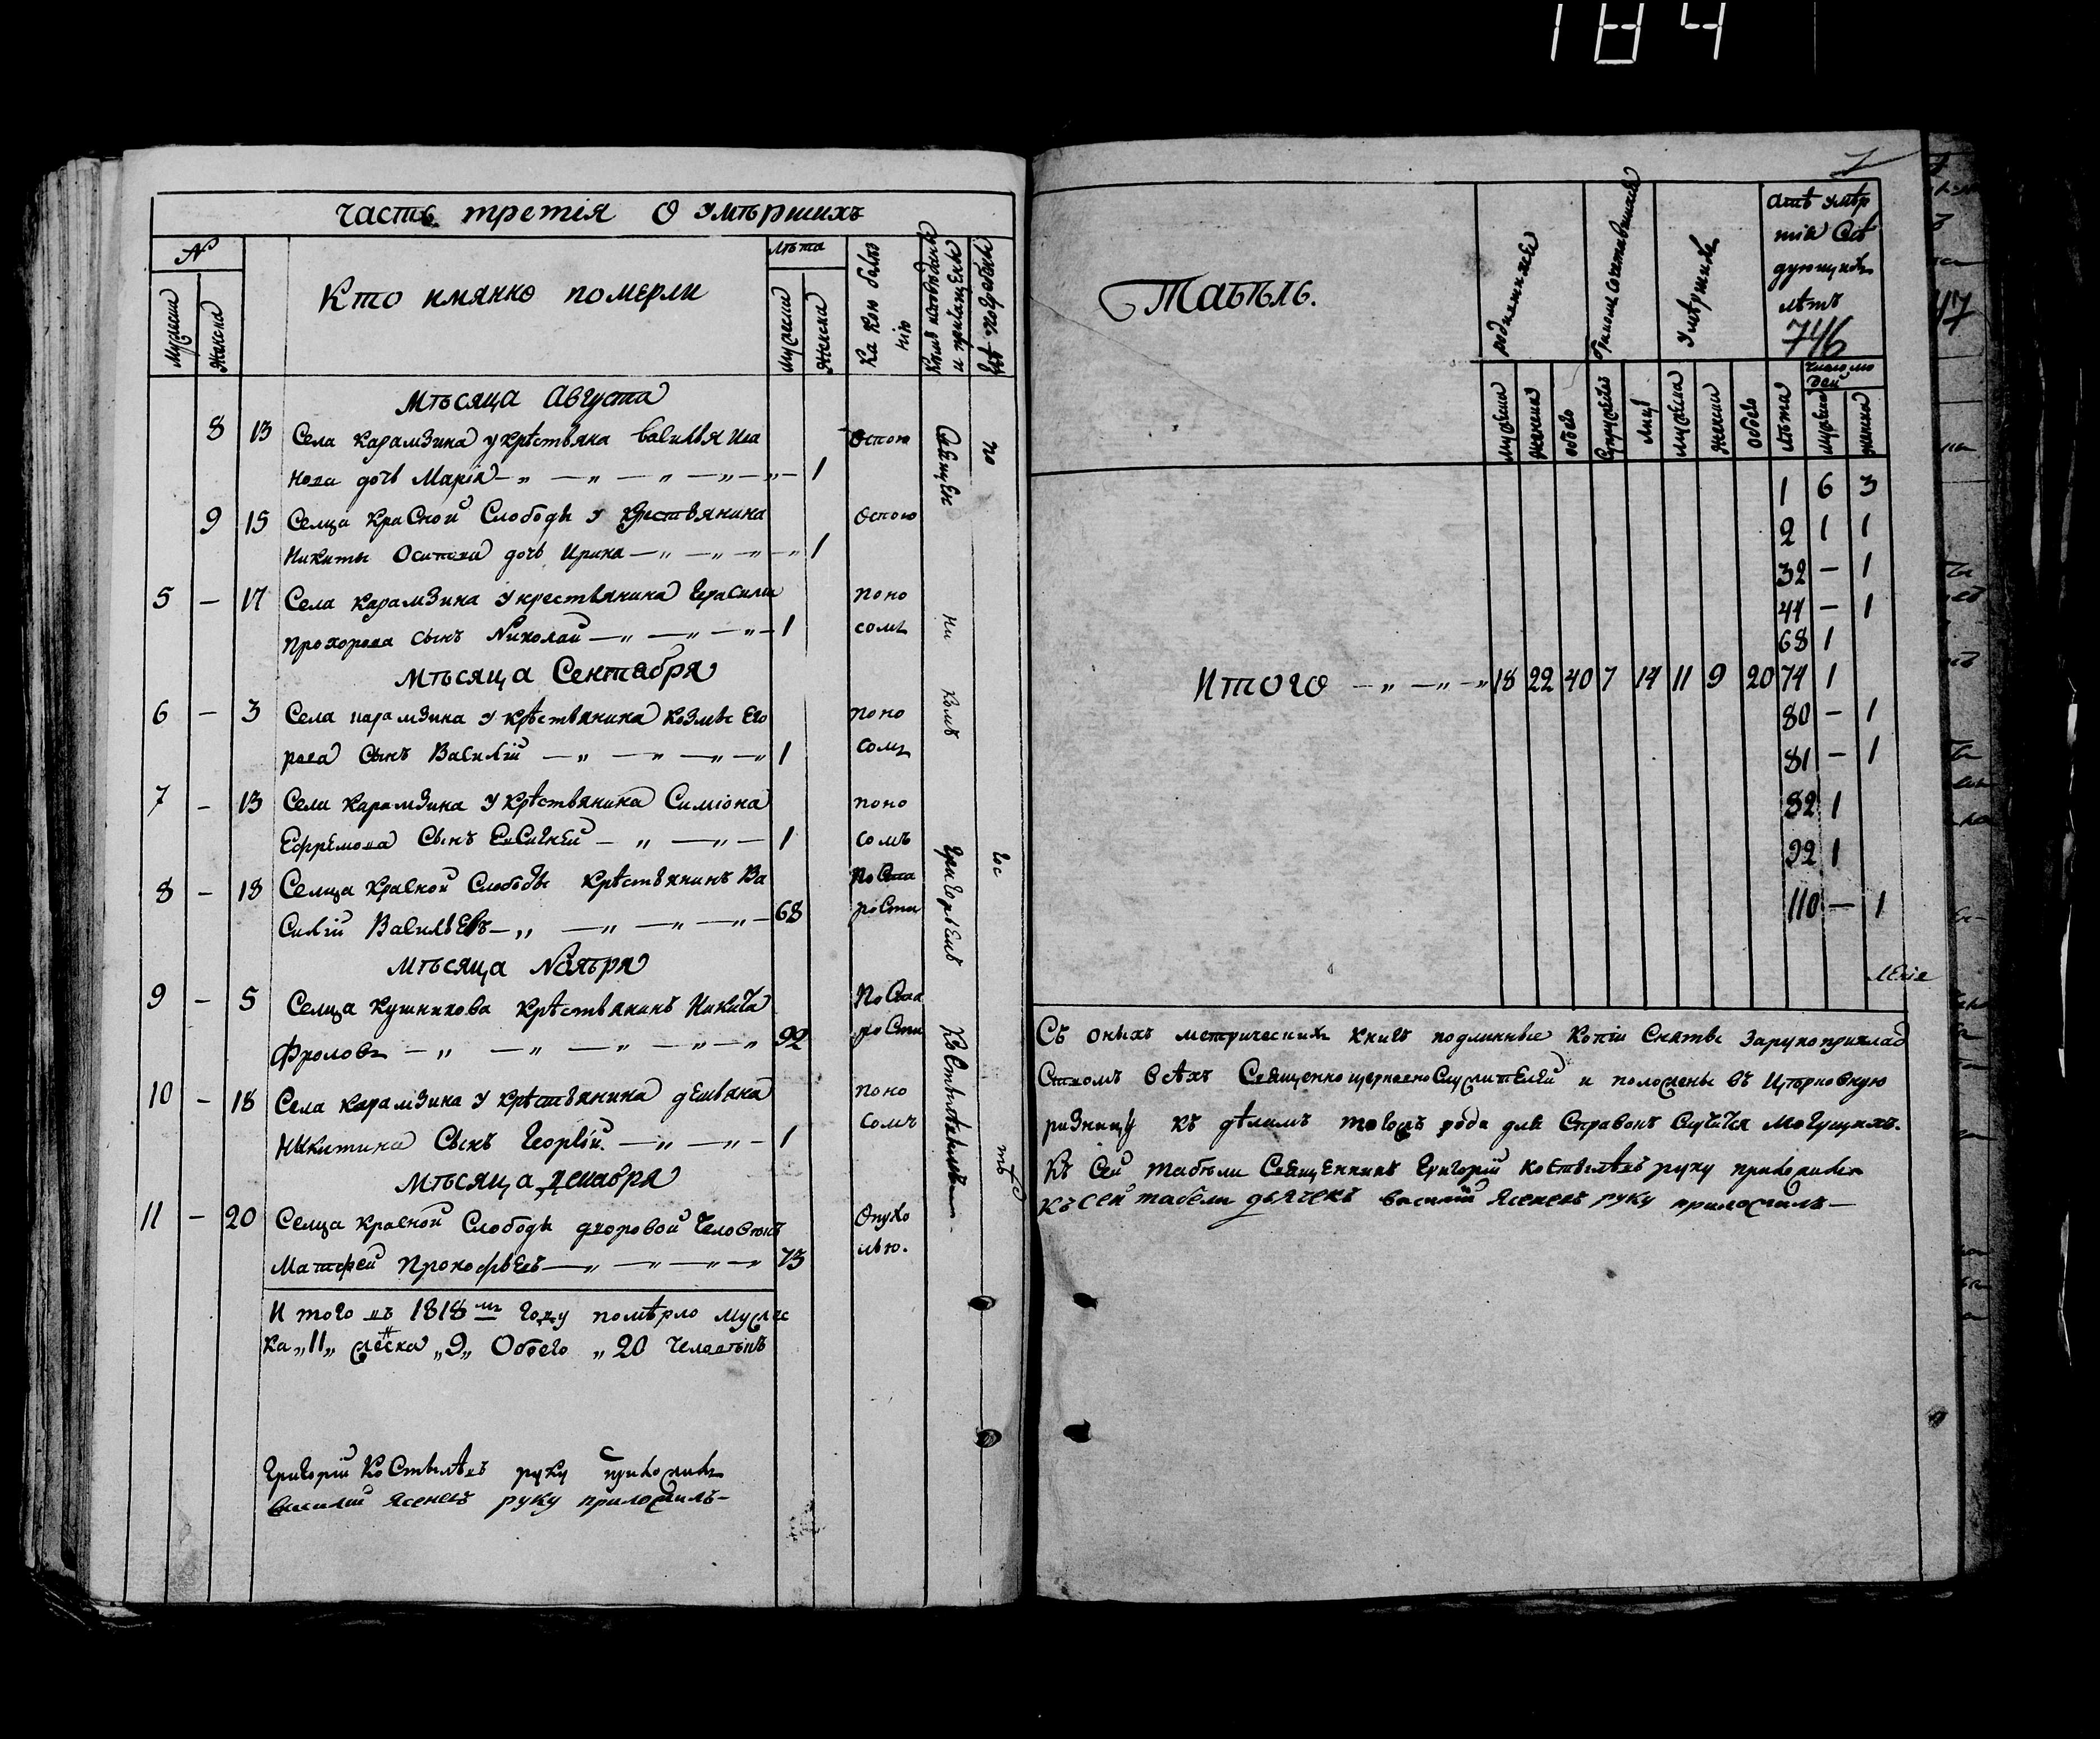 184
часть третія О умѣршихъ
№
мужеска
женска
Кто имянно померли
лѣта
мужеска
женска
Какою болѣ
нію
Кѣмъ исповѣданы
и пріобщены
гдѣ погребены
Мѣсяца Августа
8 13 Села Карамзина у крѣстьяна Василья Ива
нова дочь Марія — „ — „ — „ — „ — 1
оспою
9 15 Селца Красной Слободы у крестьянина
Никиты Осипова дочь Ирина — „ — „ — „ 1
оспою
5 — 17 Села Карамзина у крестьянина Герасима
Прохорова сынъ Николай — „ — „ — „ — 1
поно
сомъ
Мѣсяца Сентября
6 — 3 Села Карамзина у крѣстьянина Козмы Его
рова сынъ Василій — „ — „ — „ 1
поно
сомъ
7 — 13 Села Карамзина у крѣстьянина Симіона
Ефрѣмова сынъ Евсигней — „ — „ — 1
поно
сомъ
8 — 18 Селца Красной Слободы крѣстьянинъ Ва
силій Васильевъ — „ — „ — „ — 68
По Ста
рости
Мѣсяца Ноября
9 — 5 Селца Кушникова крѣстьянинъ Никита
Фроловъ — „ — „ — „ — „ — „ 92
По Ста
рости
10 — 18 Села Карамзина у крѣстьянина демьяна
Никитина сынъ Георгій — „ — „ — 1
поно
сомъ
Мѣсяца декабря
11 — 20 Селца Красной Слободы дворовой человѣкъ
Матфей Прокофьевъ — „ — „ — „ 73
Опухо
лью.
Священ
ни
комъ
Григорьемъ
Костылѣвымъ
по
гос
тѣ
И того въ 1818м году помѣрло мужес
ка „11„ женска „9„ Обоего „20 человѣкъ
Григорій Костылѣвъ руку приложилъ
василій Ясеневъ руку приложилъ —
7
Табѣль.
родившихся
бракомъ сочетавшихся
умѣршихъ
746
лѣтъ
мужеска
женска
обоего
супружествъ
лицъ
мужеска
женска
обоего
лѣта
число лю
дей
мужеска
женска
1 6 3
2 1 1
32 — 1
44 — 1
68 1
Итого — „ — „ — „ 18 22 40 7 14 11 9 20 74 1
80 — 1
81 — 1
82 1
92 1
110 — 1
Съ оныхъ метрическихъ книгъ подлинные копіи сняты зарукоприклад
ствомъ всѣхъ Священноцерковнослужителей и положены въ Цѣрковную
ризницу къ дѣламъ тогожъ рода для справокъ случится могущихъ.
Къ сей табѣли Священникъ Григорій Костылѣвъ руку приложилъ
Къ сей табели дьячекъ василій Ясеневъ руку приложилъ —